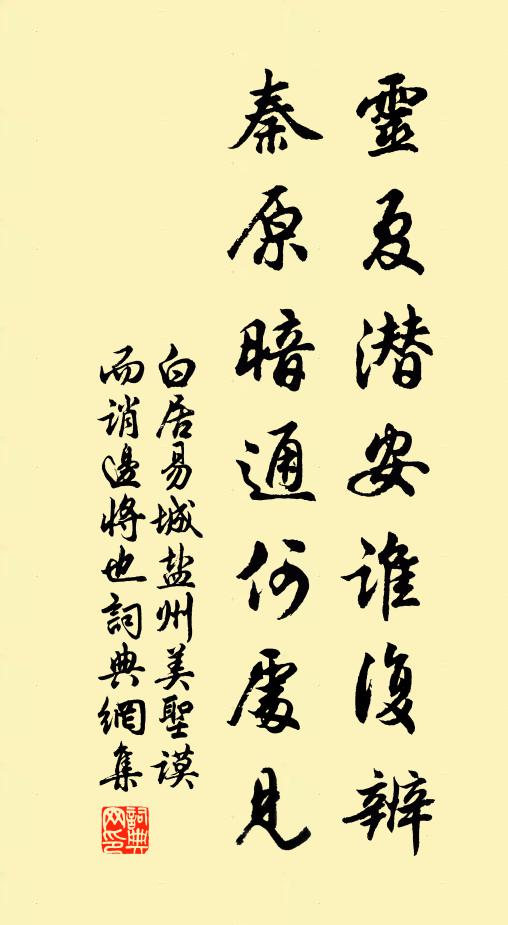 靈夏潜安誰復辨
秦原暗通何處見
白居易城盐州美聖謨
而誚邊將也詞典網集
詞典
网印